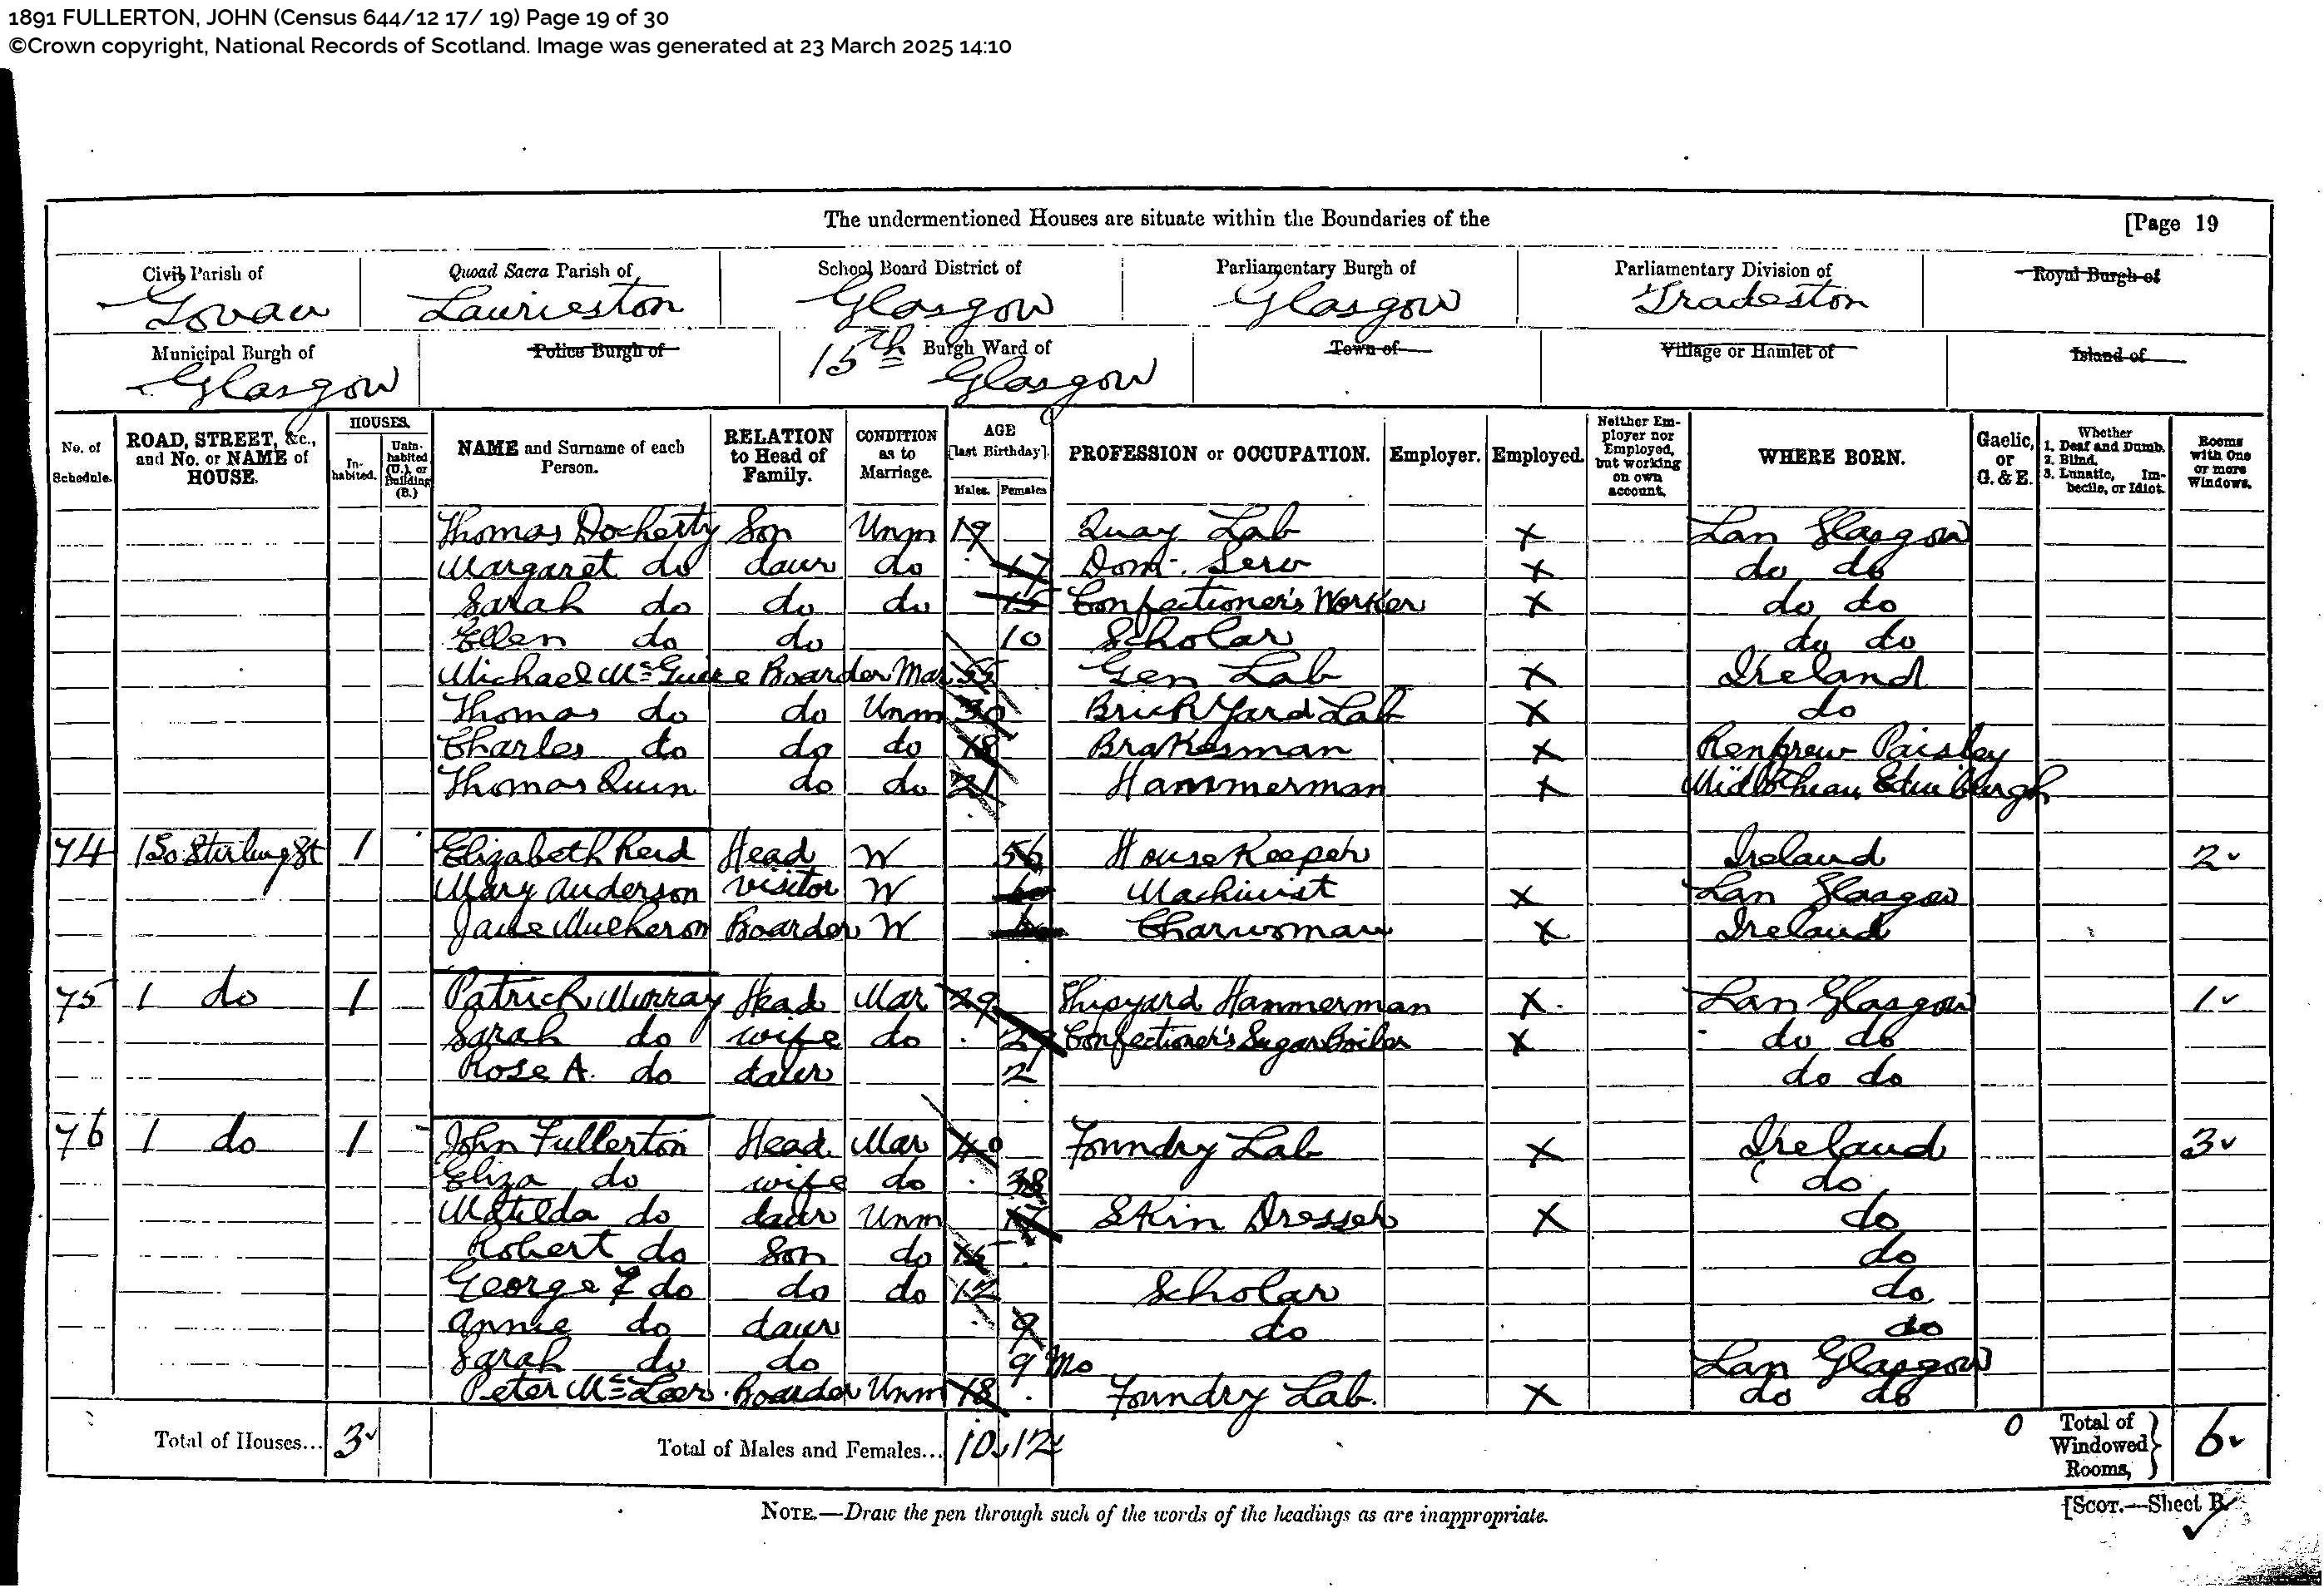 1891 FULLERTON, JOHN (Census 644/12 17/ 19) Page 19 of 30
©Crown copyright, National Records of Scotland. Image was generated at 23 March 2025 14:10
The undermentioned Houses are situate within the Boundaries of the [Page 19
Civil Parish of Quoad Sacra Parish of School Board District of Parliamentary Burgh of Parliamentary Division of Royal Burgh of
Govan Laurieston Glasgow Glasgow Tradeston
Municipal Burgh of Police Burgh of 15th Burgh Ward of Town of Village or Hamlet of Island of
Glasgow Glasgow
No. of Schedule. ROAD, STREET, &c., and No. or NAME of HOUSE. HOUSES. Inhabited. Uninhabited (U.), or Building (B.) NAME and Surname of each Person. RELATION to Head of Family. CONDITION as to Marriage. AGE [last Birthday]. Males. Females PROFESSION or OCCUPATION. Employer. Employed. Neither Employer nor Employed, but working on own account. WHERE BORN. Gaelic, or G. & E. Whether 1. Deaf and Dumb. 2. Blind. 3. Lunatic, Imbecile, or Idiot. Rooms with One or more Windows.
Thomas Docherty Son Unm 19 Quay Lab X Lan Glasgow
Margaret do daur do 17 Dom. Serv X do do
Sarah do do do 15 Confectioner's Worker X do do
Ellen do do 10 Scholar do do
Michael McGuire Boarder Mar 55 Gen Lab X Ireland
Thomas do do Unm 30 Brick Yard Lab X do
Charles do do do 18 Brakesman X Renfrew Paisley
Thomas Quin do do 21 Hammerman X Midlothian Edinburgh
74 1 So. Stirling St 1 Elizabeth Reid Head W 56 House Keeper Ireland 2
Mary Anderson visitor W Machinist X Lan Glasgow
Jane Mulheron Boarder W Charwoman X Ireland
75 1 do 1 Patrick Murray Head Mar 29 Shipyard Hammerman X Lan Glasgow 1
Sarah do wife do 29 Confectioner's Sugar Boiler X do do
Rose A. do daur 2 do do
76 1 do 1 John Fullerton Head Mar 40 Foundry Lab X Ireland 3
Eliza do wife do 38 do
Matilda do daur Unm 17 Skin Dresser X do
Robert do Son do 15 do
George F do do do 12 Scholar do
Annie do daur 9 do do
Sarah do do 9 Mo Lan Glasgow
Peter McLeer Boarder Unm 18 Foundry Lab. X do do
Total of Houses... 3 Total of Males and Females... 10 12 0 Total of Windowed Rooms, 6
NOTE.—Draw the pen through such of the words of the headings as are inappropriate.
[SCOT.—Sheet B.